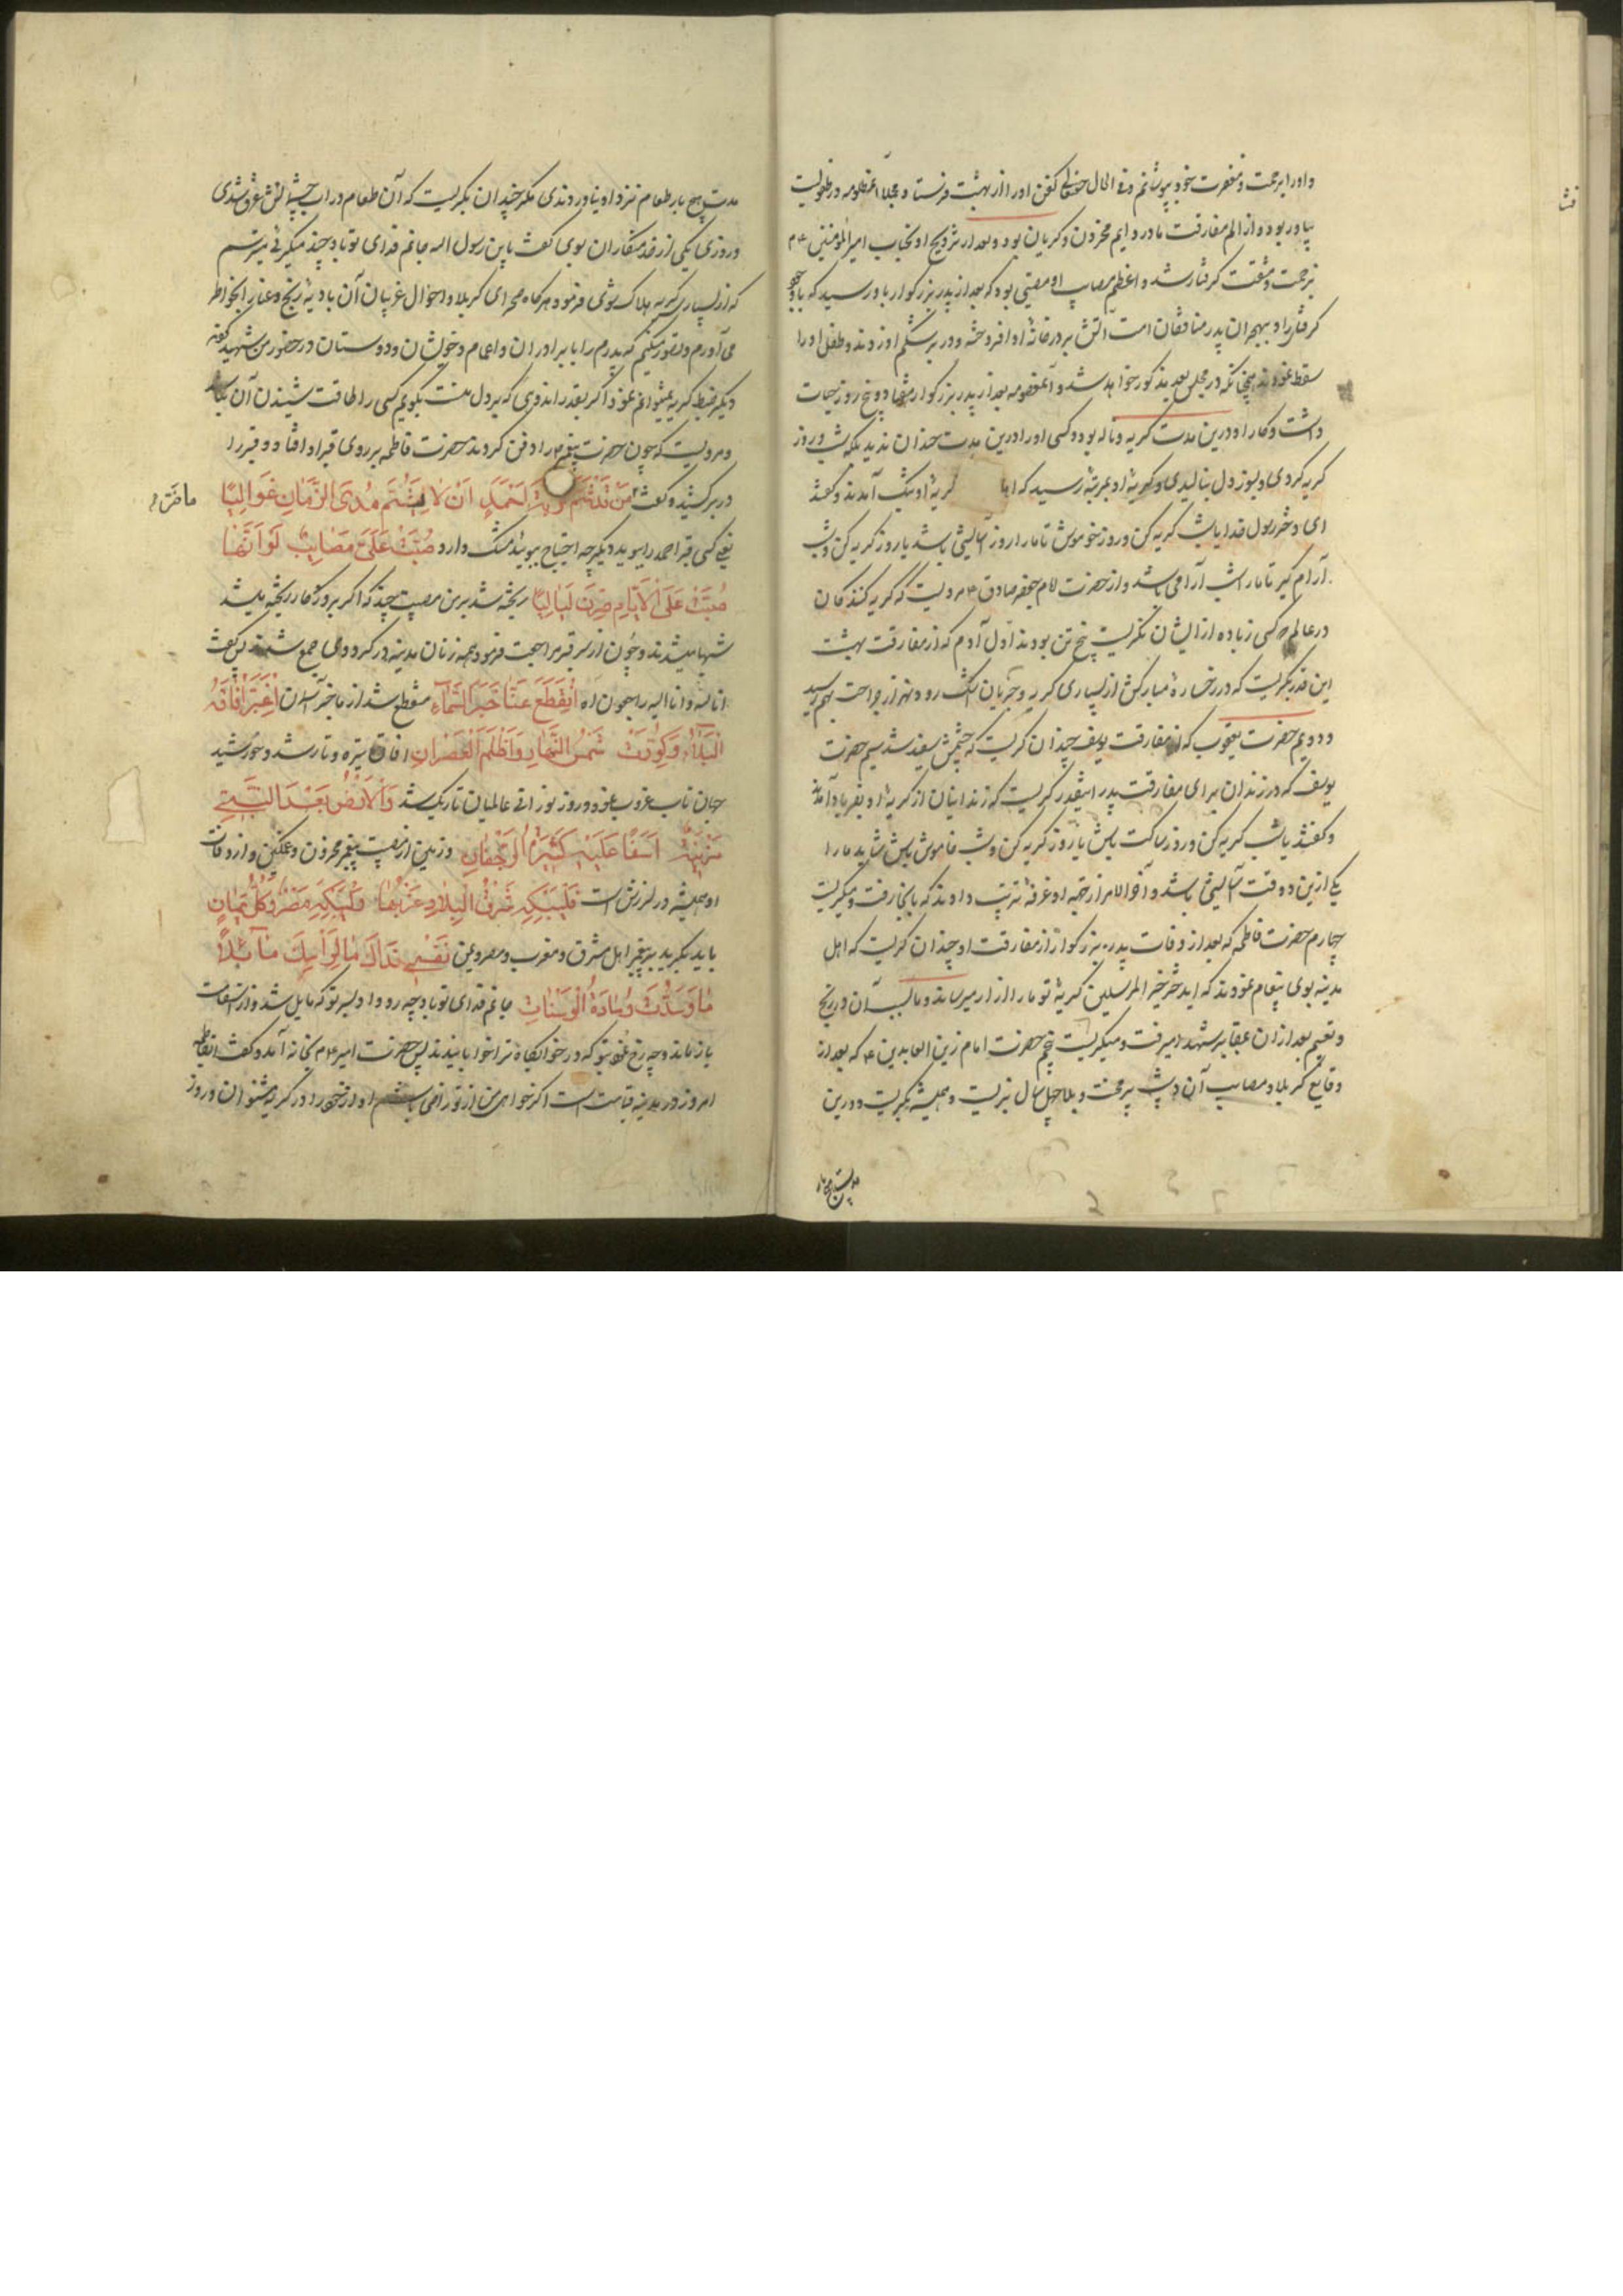 و او را برحمت و مغفرت خود بپوشانم و فی الحال کفن او را از بهشت فرستاد و مجلا آنمظلومه در طفولیت
بیمادر بود و از الم مفارقت مادر دایم محزون و گریان بود و بعد از تزویج او بجناب امیرالمؤمنین ع م
بزحمت و مشقت گرفتار شد و اعظم مصایب او مصیبتی بود که بعد از پدر بزرگوار باو رسید که باوجود
گرفتاری او بهجران پدر منافقان امت آتش بر در خانهٔ او افروخته و در بر شکم او زدند و طفل او را
سقط نمودند چنانکه در مجلس بعد مذکور خواهد شد و آنمعصومه بعد از پدر بزرگوار هفتاد و پنج روز حیات
داشت و کار او درین مدت گریه و ناله بود و کسی او را درین مدت خندان ندید بلکه شب و روز
گریه کردی و بسوز دل بنالیدی و گریهٔ او بمرتبهٔ رسید که اهل گریهٔ او بتنگ آمدند و گفتند
ای دختر رسول خدا یا شب گریه کن و روز خموش تا ما را روز آسایشی باشد یا روز گریه کن و شب
آرام گیر تا ما را شب آرامی باشد و از حضرت امام جعفر صادق ع مرویست که گریه کنندکان
در عالم که کسی زیاده از ایشان نگریست پنج تن بودند اول آدم که از مفارقت بهشت
این قدر بگریست که در رخسارهٔ مبارکش از بسیاری گریه و جریان اشک رود و نهر از جراحت بهم رسید
و دویم حضرت یعقوب که از مفارقت یوسف چندان گریست که چشمش سفید شد سیم حضرت
یوسف که در زندان برای مفارقت پدر اینقدر گریست که زندانیان از گریهٔ او بفریاد آمدند
و گفتند یا شب گریه کن و روز ساکت باش یا روز گریه کن و شب خاموش باش شاید ما را
یکی ازین دو وقت آسایشی باشد و آخر الامر از جهة او غرفهٔ ترتیب دادند که بآنجا رفت و میگریست
چهارم حضرت فاطمه که بعد از وفات پدر بزرگوار از مفارقت او چندان گریست که اهل
مدینه بوی پیغام نمودند که ای دختر خیر المرسلین گریهٔ تو ما را آزار میرساند و ما بسبب آن در رنج
و تعبیم بعد از ان بمقابر شهدا میرفت و میگریست پنجم حضرت امام زین العابدین ع که بعد از
وقایع کربلا و مصایب آن دشت پر محنت و بلا چهل سال بزیست و همیشه بگریست و درین
مدت هیچ بار
مدت هیچ بار طعام نزد او نیاوردندی مگر چندان بگریست که آن طعام در آب چشمانش غرق شدی
و روزی یکی از خدمتکاران بوی گفت یابن رسول الله جانم فدای تو باد چند میگریی میترسم
که از بسیاری گریه هلاک شوی فرمود هرگاه صحرای کربلا و احوال غریبان آن بادیهٔ رنج و عنا را بخاطر
می آورم و تصور میکنم که پدرم را با برادران و اعمام و خویشان و دوستان در حضور من شهید کردند
دیگر ضبط گریه نمیتوانم نمود و اگر بقدر اندوهی که بر دل منست بگویم کسی را طاقت شنیدن آن نباشد
و مرویست که چون حضرت پیغمبر را دفن کردند حضرت فاطمه بر روی قبر او افتاد و قبر را
در بر کشید و گفت مَنْ شَمَّ تُرْبَةَ اَحْمَدٍ اَنْ لَا یَشُمَّ مُدَی الزَّمَانِ غَوَالِیًا
یعنی کسی قبر احمد را ببوید دیگر چه احتیاج ببوییدن مشک دارد صُبَّتْ عَلَیَّ مَصَایِبٌ لَوْ اَنَّهَا
صُبَّتْ عَلَی الْاَیَّامِ صِرْنَ لَیَالِیًا ریخته شد بر من مصیبت چند که اگر بر روزگار ریخته میشد
شبها میشدند و چون از سر قبر مراجعت فرمود همه زنان مدینه در گرد وی جمع شدند پس گفت
انا لله و انا الیه راجعون اه اِنْقَطَعَ عَنَّا خَبَرُ السَّمَآءِ منقطع شد از ما خبر آسمان اِغْبَرَّ اٰفَاقُ
الْبِلَادِ وَکُوِّرَتْ شَمْسُ النَّهَارِ وَاَظْلَمَ الْعَصْرَانِ افاق تیره و تار شد و خورشید
جهان تاب غروب نمود و روز نورانی عالمیان تاریک شد وَالْاَرْضُ بَعْدَ النَّبِیِّ
حَزِینَةٌ اَسَفًا عَلَیْهِ کَثِیرَةُ الرَّجَفَانِ و زمین از مصیبت پیغمبر محزون و غمگین و از وفات
او همیشه در لرزش است فَلْیَبْکِهِ شَرْقُ الْبِلَادِ وَغَرْبُهَا وَلْیَبْکِهِ مُضَرٌ وَکُلُّ یَمَانٍ
باید بگرید بر پیغمبر اهل مشرق و مغرب و مصر و یمن نَفْسِی فِدَاکَ مَا لِرَاْسِکَ مَآئِلًا
مَا وَسَّدُتَ وِسَادَةَ الْوَسْنَانِ جانم فدای تو باد چه رو داد و بسر تو که مایل شد و از شفاعت
باز ماند و چه رنج نمود بتو که در خوابگاه ترا خوابانیدند پس حضرت امیر ع م بخانه آمد و گفت ایفاطمه
امروز در مدینه قیامت است اگر خواهی من از تو راضی باشم آواز خود را در گریه مشنوان و روز